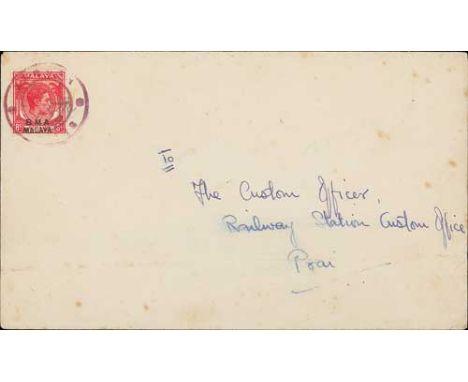 MALAYA
B M A
MALAYA
The Custom Officer,
Railway Station Custom Office
Prai